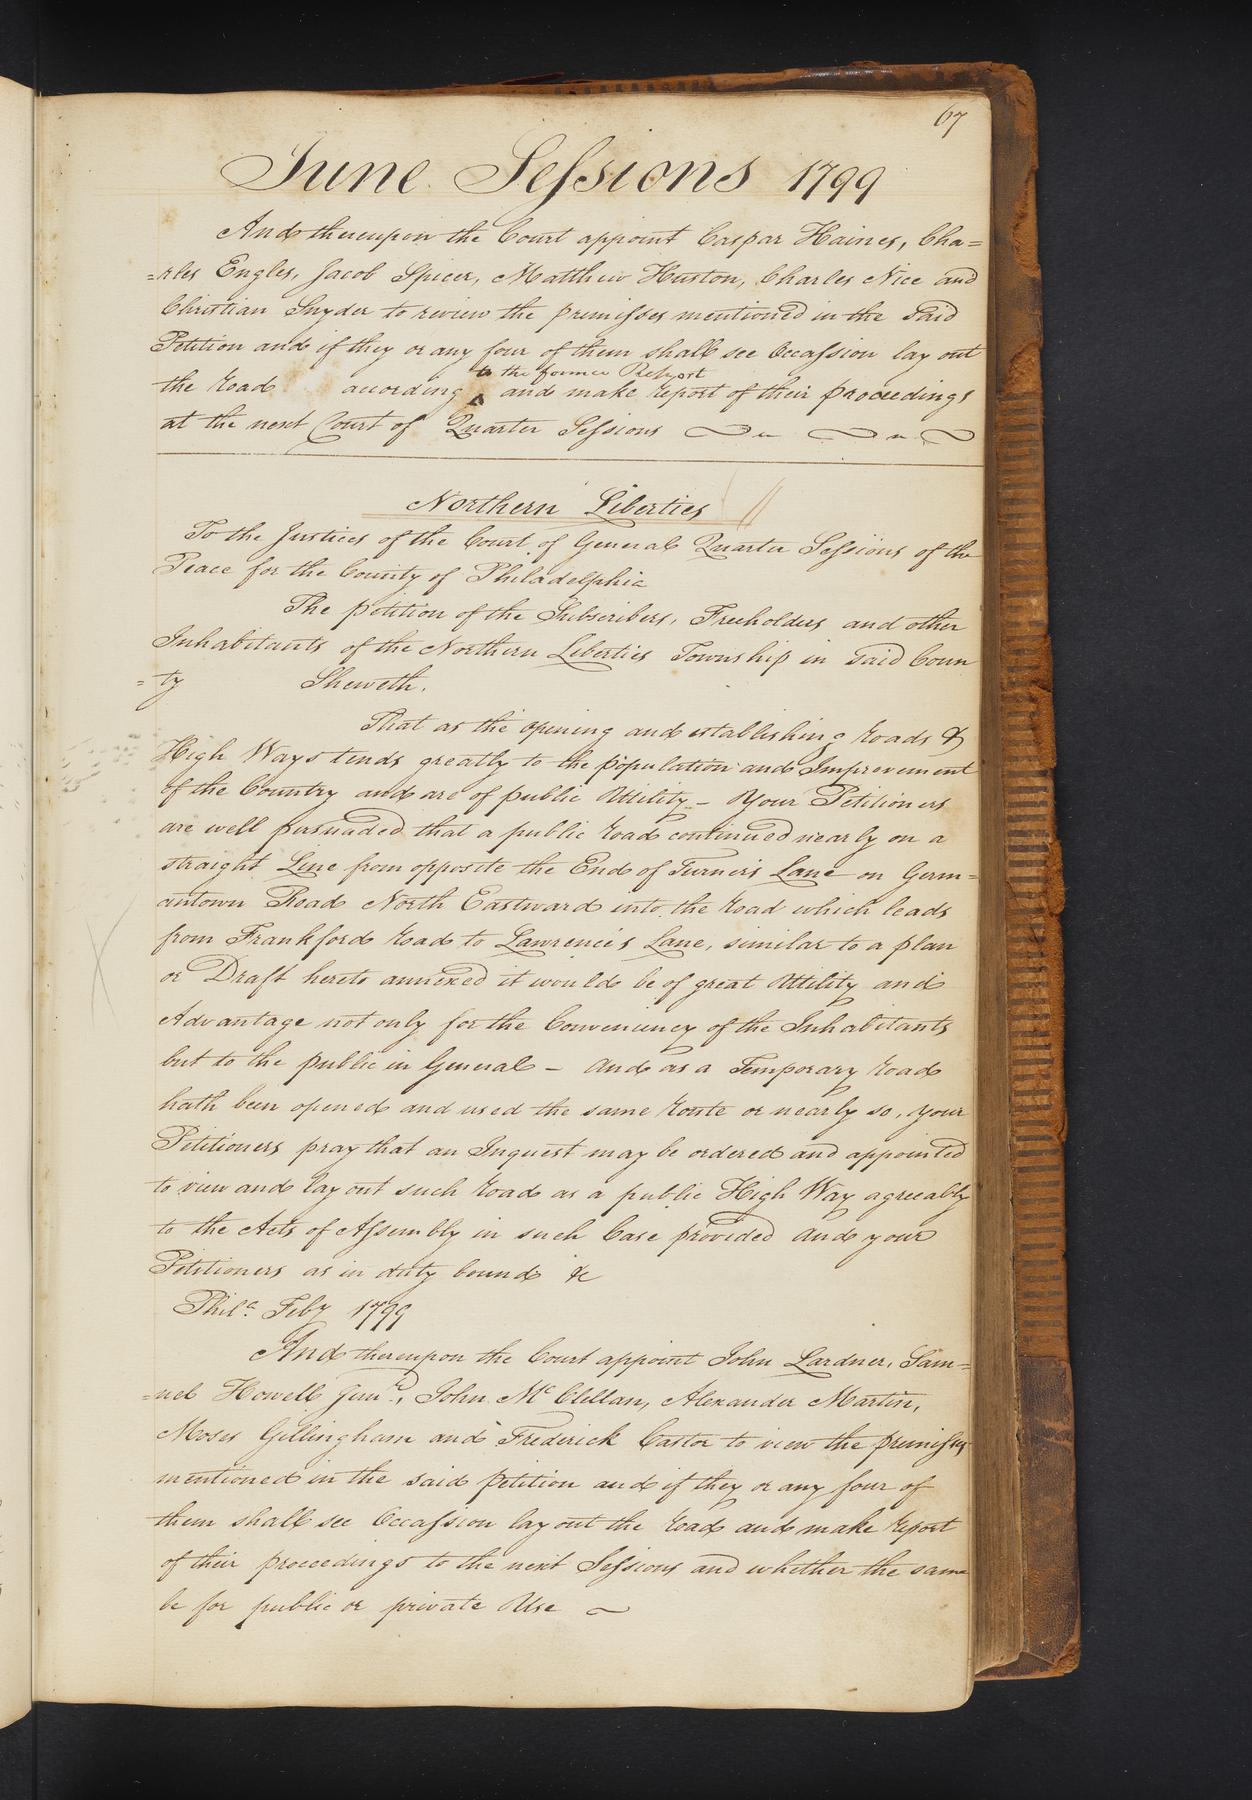 67
June Sessions 1799
And thereupon the Court appoint Caspar Haines, Cha=
=rles Engles, Jacob Spicer, Matthew Huston, Charles Nice and
Christian Snyder to review the premisses mentioned in the said
Petition and if they or any four of them shall see Occassion lay out
to the former Report
the Road according ^ and make report of their proceedings
at the next Court of Quarter Sessions
Northern Liberties
To the Justices of the Court of General Quarter Sessions of the
Peace for the County of Philadelphia
The petition of the Subscribers, Freeholders and other
Inhabitants of the Northern Liberties Township in said Coun
=ty Sheweth.
That as the opening and establishing Roads &
High Ways tends greatly to the population and Improvement
of the Country and are of public Utility – Your Petitioners
are well persuaded that a public road continued nearly on a
straight Line from opposite the End of Turner's Lane on Germ=
antown Road North Eastward into the road which leads
from Frankford road to Lawrence's Lane, similar to a plan
or Draft hereto annexed it would be of great Utility and
Advantage not only for the Conveniency of the Inhabitants
but to the public in General – And as a Temporary road
hath been opened and used the same route or nearly so, your
Petitioners pray that an Inquest may be ordered and appointed
to view and lay out such road as a public High Way agreeably
to the Acts of Assembly in such Case provided And your
Petitioners as in duty bound &c
Phila. Feby 1799
And thereupon the Court appoint John Lardner, Sam=
=uel Howell Junr., John McClellan, Alexander Martin,
Moses Gillingham and Frederick Castor to view the premisses
mentioned in the said petition and if they or any four of
them shall see Occassion lay out the road and make report
of their proceedings to the next Sessions and whether the same
be for public or private Use